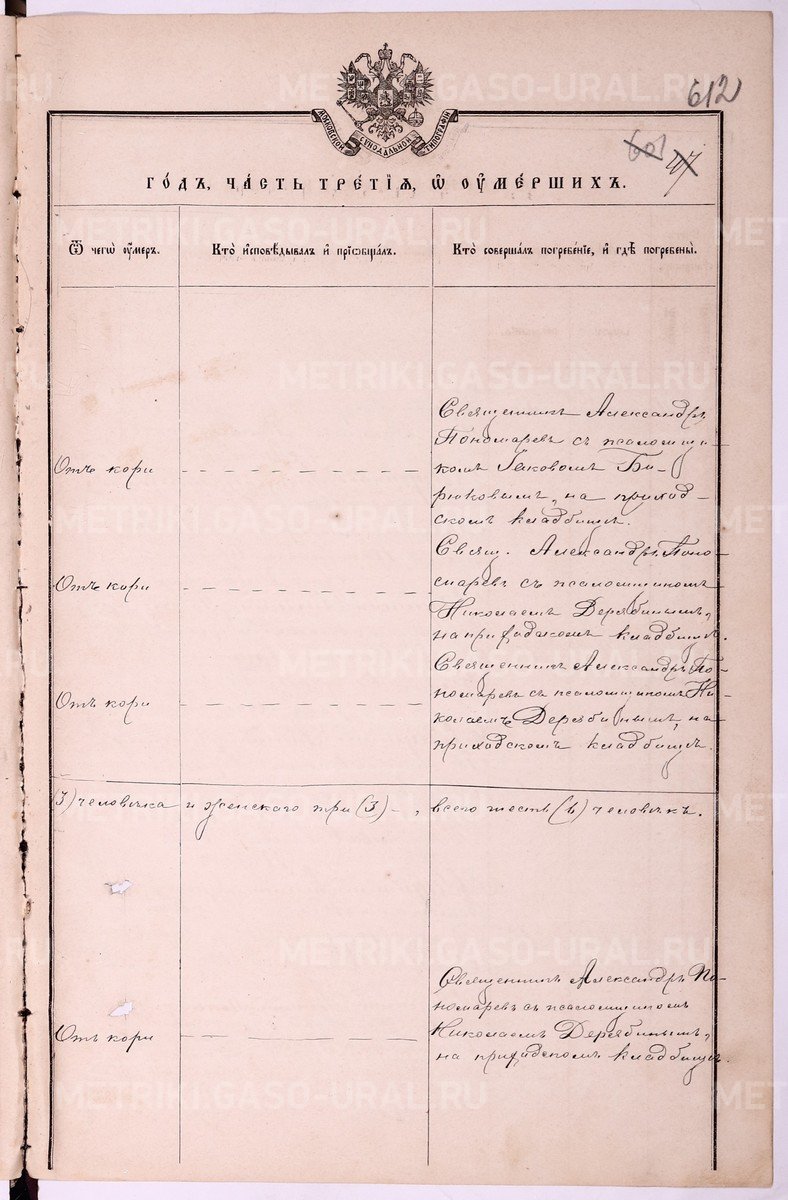 612
МОСКОВСКОЙ СѴНОДАЛЬНОЙ ТИПОГРАФІИ
601
ГО́ДЪ, ЧА́СТЬ ТРЕ́ТІѦ, Ѡ҆ ОУ҆МЕ́РШИХЪ.
Ѿ чегѡ̀ ᲂу҆́меръ.
Кто̀ и҆сповѣ́дывалъ и҆ прїѡбща́лъ.
Кто̀ соверша́лъ погребе́нїе, и҆ гдѣ̀ погребены̀.
Священникъ Александръ
Пономаревъ съ псаломщи-
Отъ кори
комъ Іаковомъ Би-
рюковымъ, на приход-
скомъ кладбищѣ.
Свящ. Александръ Поно-
Отъ кори
маревъ съ псаломщикомъ
Николаемъ Дерябинымъ,
на приходскомъ кладбищѣ.
Священникъ Александръ По-
Отъ кори
номаревъ съ псаломщикомъ Ни-
колаемъ Дерябинымъ, на
приходскомъ кладбищѣ.
(3) человѣка и женскаго три (3) -, всего шесть (6) человѣкъ.
Священникъ Александръ По-
номаревъ съ псаломщикомъ
Отъ кори
Николаемъ Дерябинымъ,
на приходскомъ кладбищѣ.
METRIKI.GASO-URAL.RU